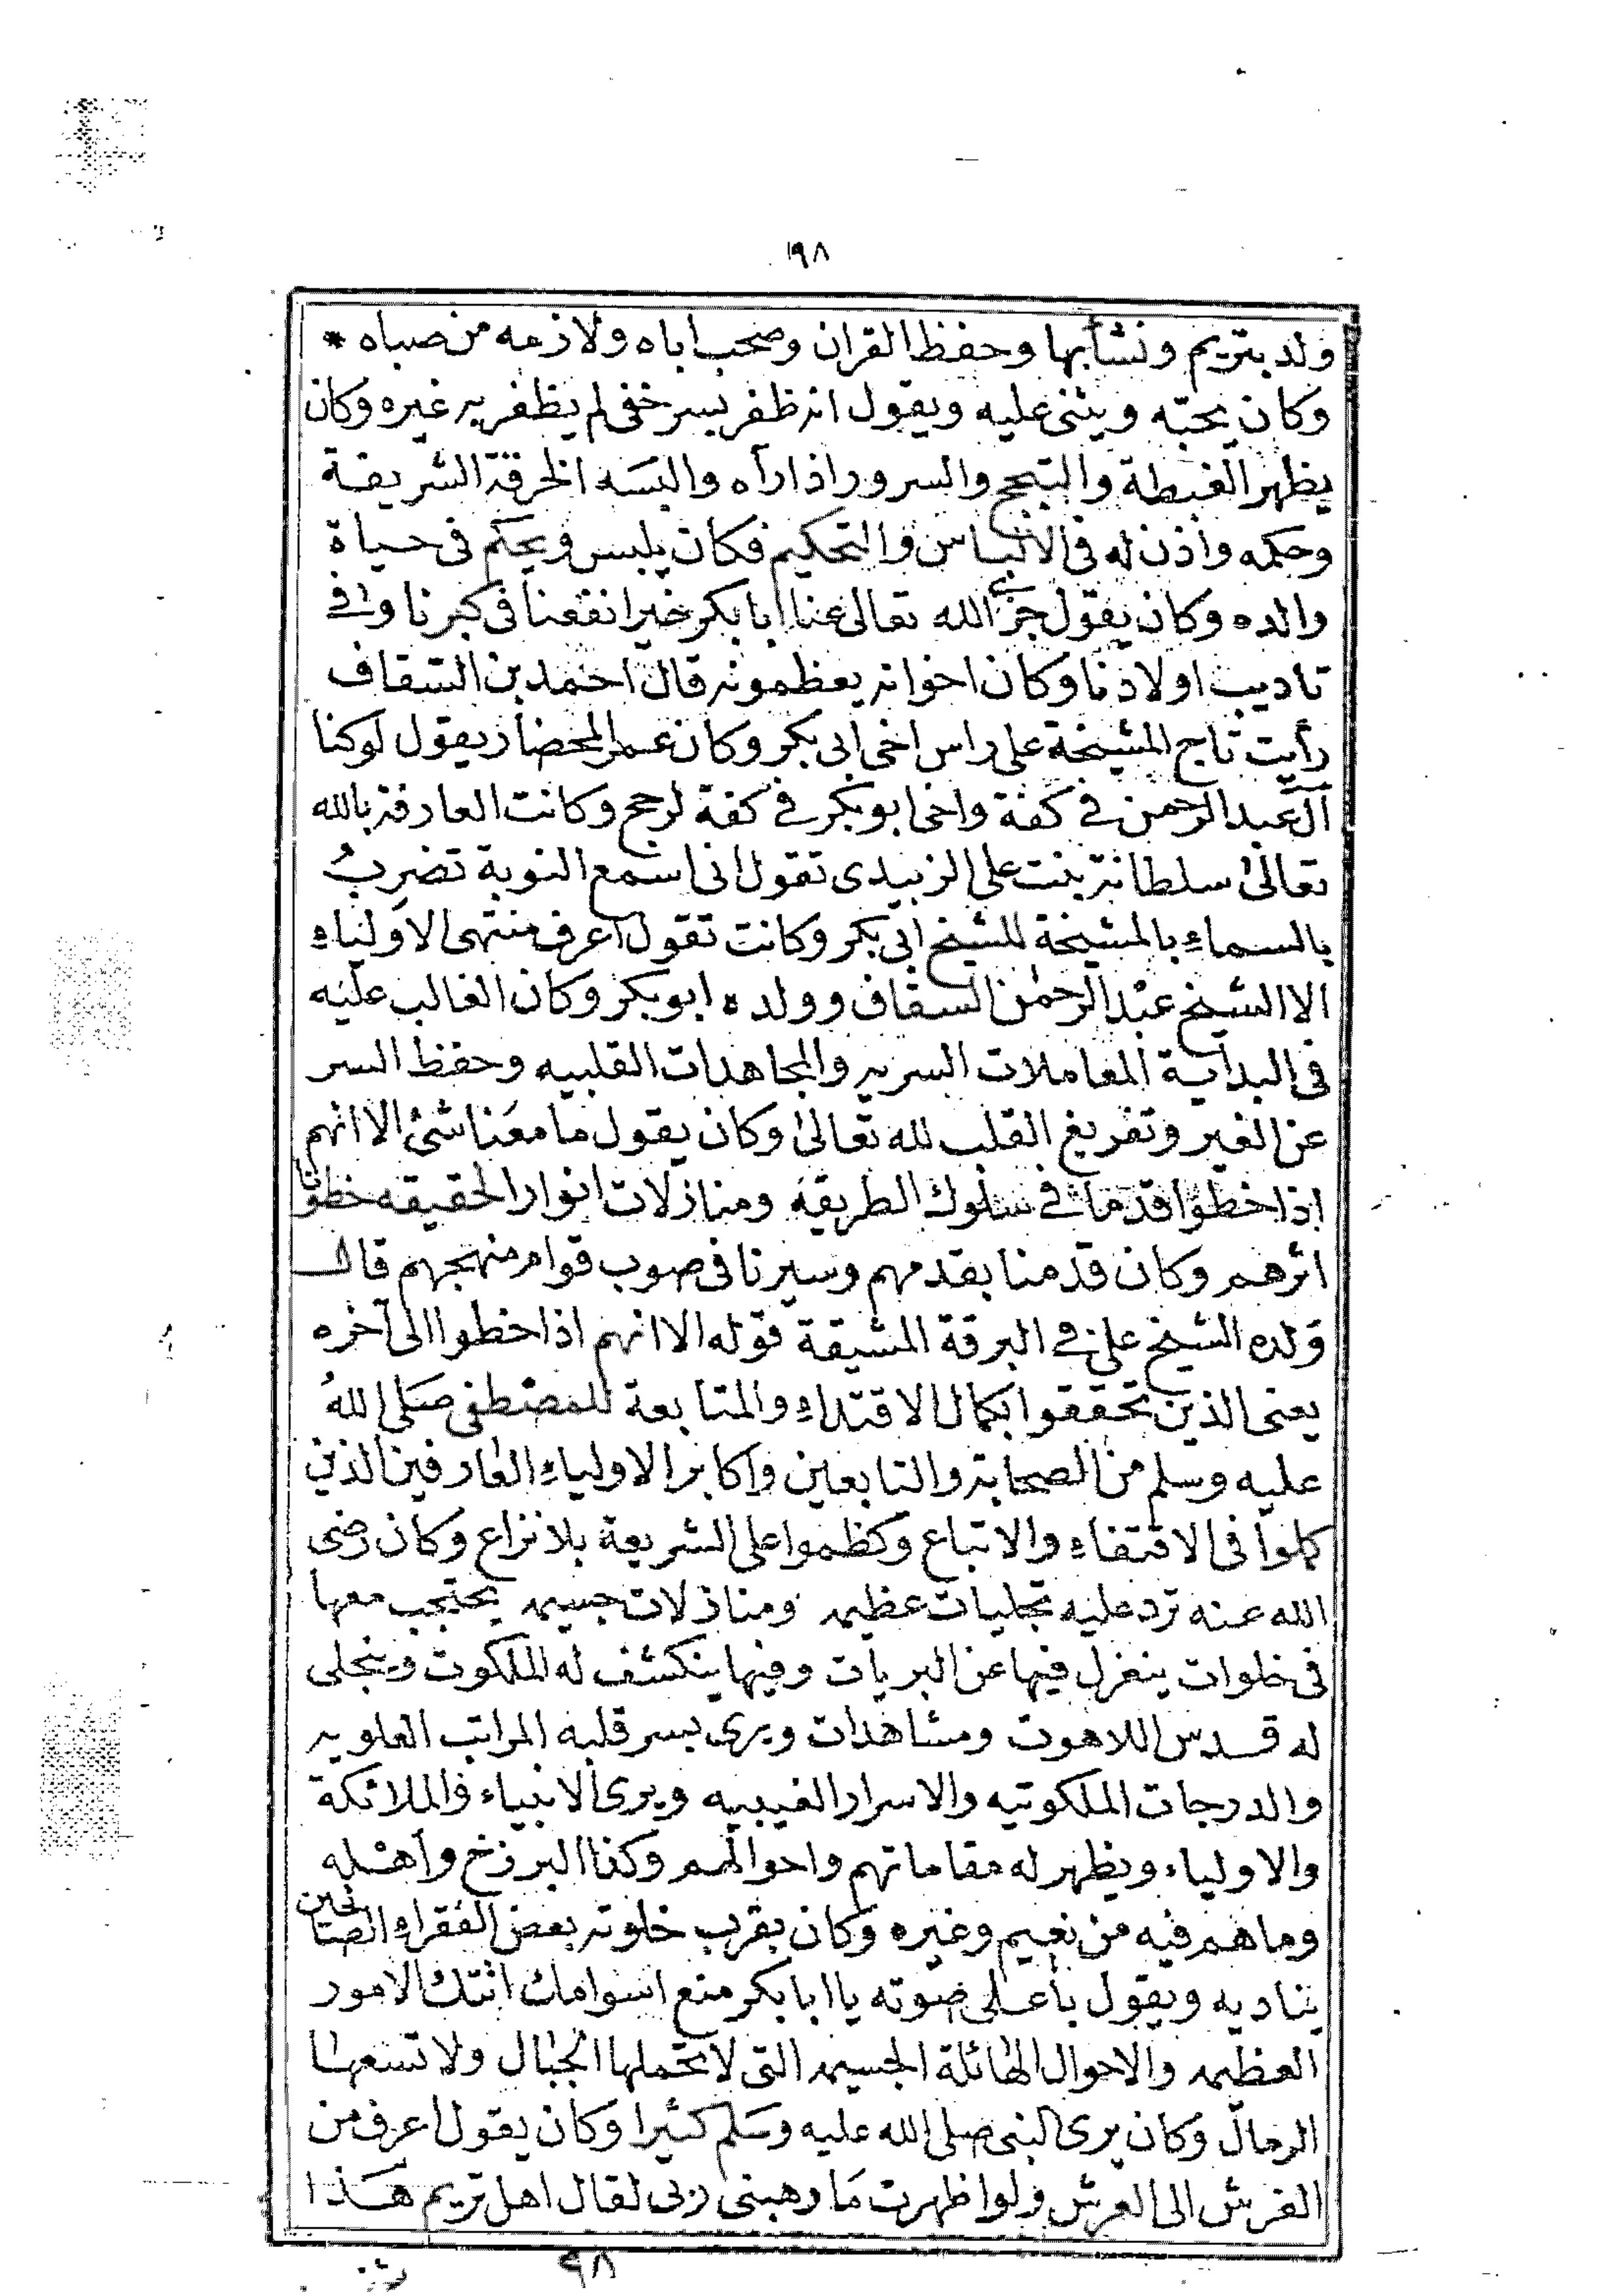 ١٩٨
ولد بتريم ونشأ بها وحفظ القران وصحب اباه ولازمه من صباه *
وكان يحبّه ويثنى عليه ويقول انه ظفر بسر خفى لم يظفر به غيره وكان
يظهر الغبطة والتبجح والسرور اذا رآه والبسه الخرقة الشريفة
وحكمه واذن له فى الالباس والتحكيم فكان يلبس ويحكم فى حياة
والده وكان يقول جزى الله تعالى عنا ابا بكر خيرا نفعنا فى كبرنا وفي
تاديب اولادنا وكان اخوانه يعظمونه قال احمد بن السقاف
رأيت تاج المشيخة على راس اخى ابى بكر وكان عمر المحضار يقول لو كنا
آل عبد الرحمن في كفة واخى ابو بكر في كفة لرجح وكانت العارفة بالله
تعالى سلطانة بنت على الزبيدى تقول انى اسمع النوبة تضرب
بالسماء بالمشيخة للشيخ ابى بكر وكانت تقول اعرف منتهى الاولياء
الا الشيخ عبد الرحمٰن السقاف وولده ابو بكر وكان الغالب عليه
فى البداية المعاملات السريه والمجاهدات القلبيه وحفظ السر
عن الغير وتفريغ القلب لله تعالىٰ وكان يقول ما معنا شئ الا انهم
اذا خطوا قدما في سلوك الطريقه ومنازلات انوار الحقيقه خطونا
اثرهم وكان قدمنا بقدمهم وسيرنا فى صوب قوام منهجهم قال
ولده الشيخ على في البرقة المشيقة قوله الا انهم اذا خطوا الى آخره
يعنى الذين تحققوا بكمال الاقتداء والمتابعة للمصطفى صلى الله
عليه وسلم من الصحابة والتابعين واكابر الاولياء العارفين الذين
كملوا فى الاقتفاء والاتباع وكظموا على الشريعة بلا نزاع وكان رضى
الله عنه ترد عليه تجليات عظيمه ومنازلات جسيمه يحتجب معها
فى خلوات ينعزل فيها عن البريات وفيها ينكشف له الملكوت ويتجلى
له قدس اللاهوت ومشاهدات ويرى بسر قلبه المراتب العلويه
والدرجات الملكوتيه والاسرار الغيبيه ويرى الانبياء والملائكة
والاولياء ويظهر له مقاماتهم واحوالهم وكذا البرزخ واهله
وما هم فيه من نعيم وغيره وكان بقرب خلوته بعض الفقراء الصالحين
يناديه ويقول بأعلى صوته يا ابا بكر متع اسوامك اتتك الامور
العظيمه والاحوال الهائلة الجسيمه التى لا تحملها الجبال ولا تسعها
الرمال وكان يرى النبى صلى الله عليه وسلم كثيرا وكان يقول اعرف من
الفرش الى العرش ولو اظهرت ما وهبنى ربى لقال اهل تريم هذا
٩٨